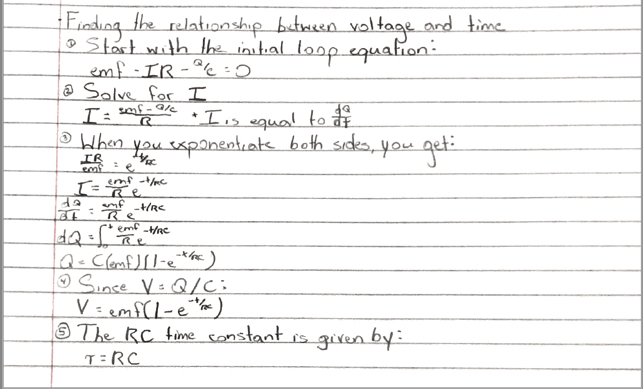 · Finding the relationship between voltage and time
① Start with the initial loop equation:
emf - IR - Q/c = 0
② Solve for I
I = (emf - Q/c)/R * I is equal to dQ/dt
③ When you exponentiate both sides, you get:
IR/emf = e^-t/RC
I = emf/R e^-t/RC
dQ/dt = emf/R e^-t/RC
dQ = ∫₀ᵗ emf/R e^-t/RC
Q = C(emf)(1-e^-t/RC)
④ Since V = Q/C:
V = emf(1-e^-t/RC)
⑤ The RC time constant is given by:
τ = RC